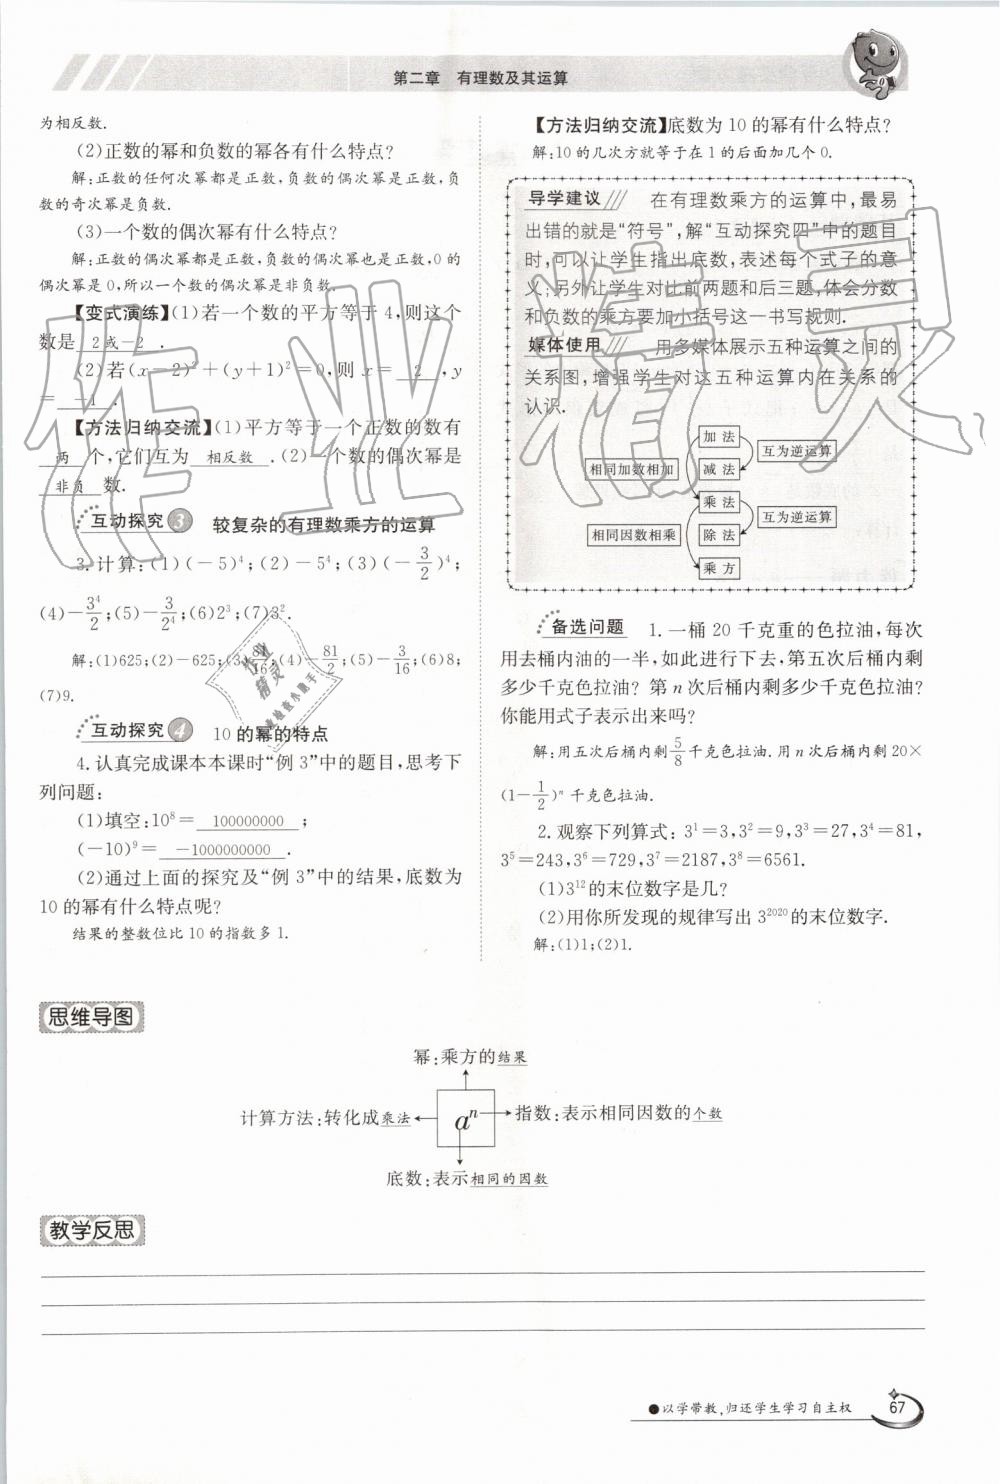 第二章 有理数及其运算
为相反数.
(2)正数的幂和负数的幂各有什么特点?
解:正数的任何次幂都是正数,负数的偶次幂是正数,负
数的奇次幂是负数.
(3)一个数的偶次幂有什么特点?
解:正数的偶次幂都是正数,负数的偶次幂也是正数,0的
偶次幂是0,所以一个数的偶次幂是非负数.
【变式演练】(1)若一个数的平方等于4,则这个
数是 2或-2 .
(2)若(x-2)²+(y+1)²=0,则x= 2 ,y
= -1 .
【方法归纳交流】(1)平方等于一个正数的数有
两 个,它们互为 相反数 .(2)一个数的偶次幂是
非负 数.
互动探究 3 较复杂的有理数乘方的运算
3.计算:(1)(-5)⁴;(2)-5⁴;(3)(-3/2)⁴;
(4)-3⁴/2;(5)-3/2⁴;(6)2³;(7)3².
解:(1)625;(2)-625;(3)81/16;(4)-81/2;(5)-3/16;(6)8;
(7)9.
互动探究 4 10的幂的特点
4.认真完成课本本课时“例3”中的题目,思考下
列问题:
(1)填空:10⁸= 100000000 ;
(-10)⁹= -1000000000 .
(2)通过上面的探究及“例3”中的结果,底数为
10的幂有什么特点呢?
结果的整数位比10的指数多1.
【方法归纳交流】底数为10的幂有什么特点?
解:10的几次方就等于在1的后面加几个0.
导学建议 在有理数乘方的运算中,最易
出错的就是“符号”,解“互动探究四”中的题目
时,可以让学生指出底数,表述每个式子的意
义;另外让学生对比前两题和后三题,体会分数
和负数的乘方要加小括号这一书写规则.
媒体使用 用多媒体展示五种运算之间的
关系图,增强学生对这五种运算内在关系的
认识.
加法
互为逆运算
相同加数相加
减法
乘法
互为逆运算
相同因数相乘
除法
乘方
备选问题 1.一桶20千克重的色拉油,每次
用去桶内油的一半,如此进行下去,第五次后桶内剩
多少千克色拉油?第n次后桶内剩多少千克色拉油?
你能用式子表示出来吗?
解:用五次后桶内剩5/8千克色拉油.用n次后桶内剩20×
(1-1/2)ⁿ千克色拉油.
2.观察下列算式:3¹=3,3²=9,3³=27,3⁴=81,
3⁵=243,3⁶=729,3⁷=2187,3⁸=6561.
(1)3¹²的末位数字是几?
(2)用你所发现的规律写出3²⁰²⁰的末位数字.
解:(1)1;(2)1.
思维导图
幂:乘方的结果
计算方法:转化成乘法
aⁿ
指数:表示相同因数的个数
底数:表示相同的因数
教学反思
●以学带教,归还学生学习自主权
67
作业精灵